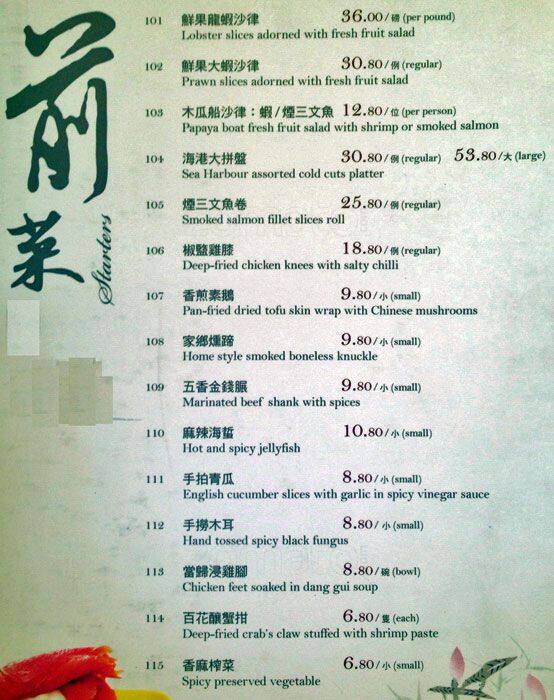 前菜
Starters
101 鮮果龍蝦沙律 36.00/磅 (per pound)
Lobster slices adorned with fresh fruit salad
102 鮮果大蝦沙律 30.80/例 (regular)
Prawn slices adorned with fresh fruit salad
103 木瓜船沙律：蝦/煙三文魚 12.80/位 (per person)
Papaya boat fresh fruit salad with shrimp or smoked salmon
104 海港大拼盤 30.80/例 (regular) 53.80/大 (large)
Sea Harbour assorted cold cuts platter
105 煙三文魚卷 25.80/例 (regular)
Smoked salmon fillet slices roll
106 椒鹽雞膝 18.80/例 (regular)
Deep-fried chicken knees with salty chilli
107 香煎素鵝 9.80/小 (small)
Pan-fried dried tofu skin wrap with Chinese mushrooms
108 家鄉燻蹄 9.80/小 (small)
Home style smoked boneless knuckle
109 五香金錢𦟌 9.80/小 (small)
Marinated beef shank with spices
110 麻辣海蜇 10.80/小 (small)
Hot and spicy jellyfish
111 手拍青瓜 8.80/小 (small)
English cucumber slices with garlic in spicy vinegar sauce
112 手撈木耳 8.80/小 (small)
Hand tossed spicy black fungus
113 當歸浸雞腳 8.80/碗 (bowl)
Chicken feet soaked in dang gui soup
114 百花釀蟹拑 6.80/隻 (each)
Deep-fried crab's claw stuffed with shrimp paste
115 香麻榨菜 6.80/小 (small)
Spicy preserved vegetable